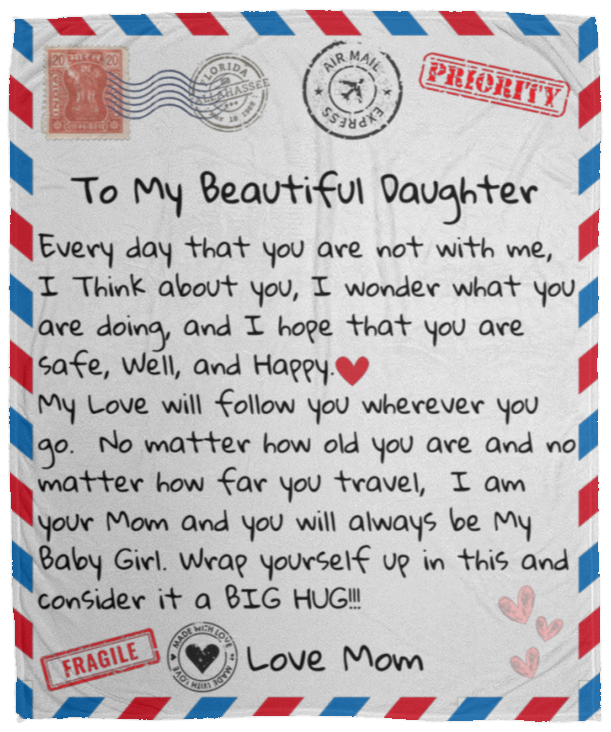 20 भारत 20
INDIA
FLORIDA
TALLAHASSEE
AIR MAIL
EXPRESS
PRIORITY
To My Beautiful Daughter
Every day that you are not with me,
I Think about you, I wonder what you
are doing, and I hope that you are
safe, Well, and Happy.
My Love will follow you wherever you
go. No matter how old you are and no
matter how far you travel, I am
your Mom and you will always be My
Baby Girl. Wrap yourself up in this and
consider it a BIG HUG!!!
FRAGILE
MADE WITH LOVE
MADE WITH LOVE
Love Mom